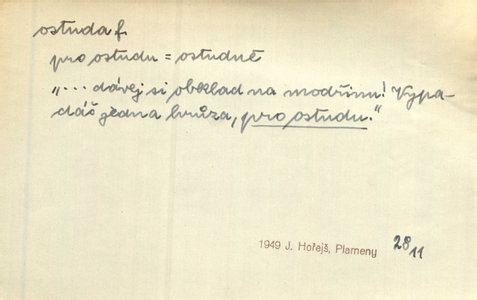 ostuda f.
pro ostudu = ostudně
„... dávej si obklad na modřinu! Vypa-
dáš jedna hrůza, pro ostudu."
1949 J. Hořejš, Plameny 28/11